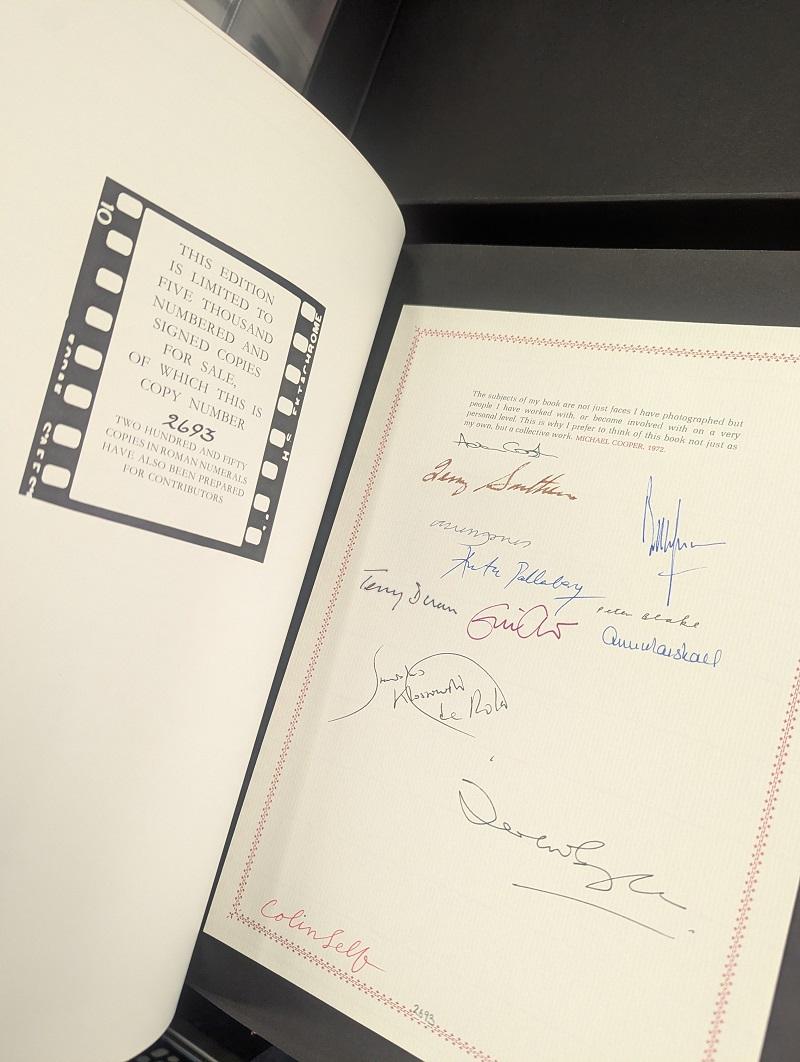 10
THIS EDITION
IS LIMITED TO
FIVE THOUSAND
NUMBERED AND
SIGNED COPIES
FOR SALE,
OF WHICH THIS IS
COPY NUMBER
2693
TWO HUNDRED AND FIFTY
COPIES IN ROMAN NUMERALS
HAVE ALSO BEEN PREPARED
FOR CONTRIBUTORS
EKTACHROME
The subjects of my book are not just faces I have photographed but
people I have worked with, or become involved with on a very
personal level. This is why I prefer to think of this book not just as
my own, but a collective work. MICHAEL COOPER, 1972.
Adam Cooper
Terry Southern
Anita Pallenberg
Terry Doran
Peter Blake
Ann Marshall
Klossowski
de Rola
Colin Self
2693